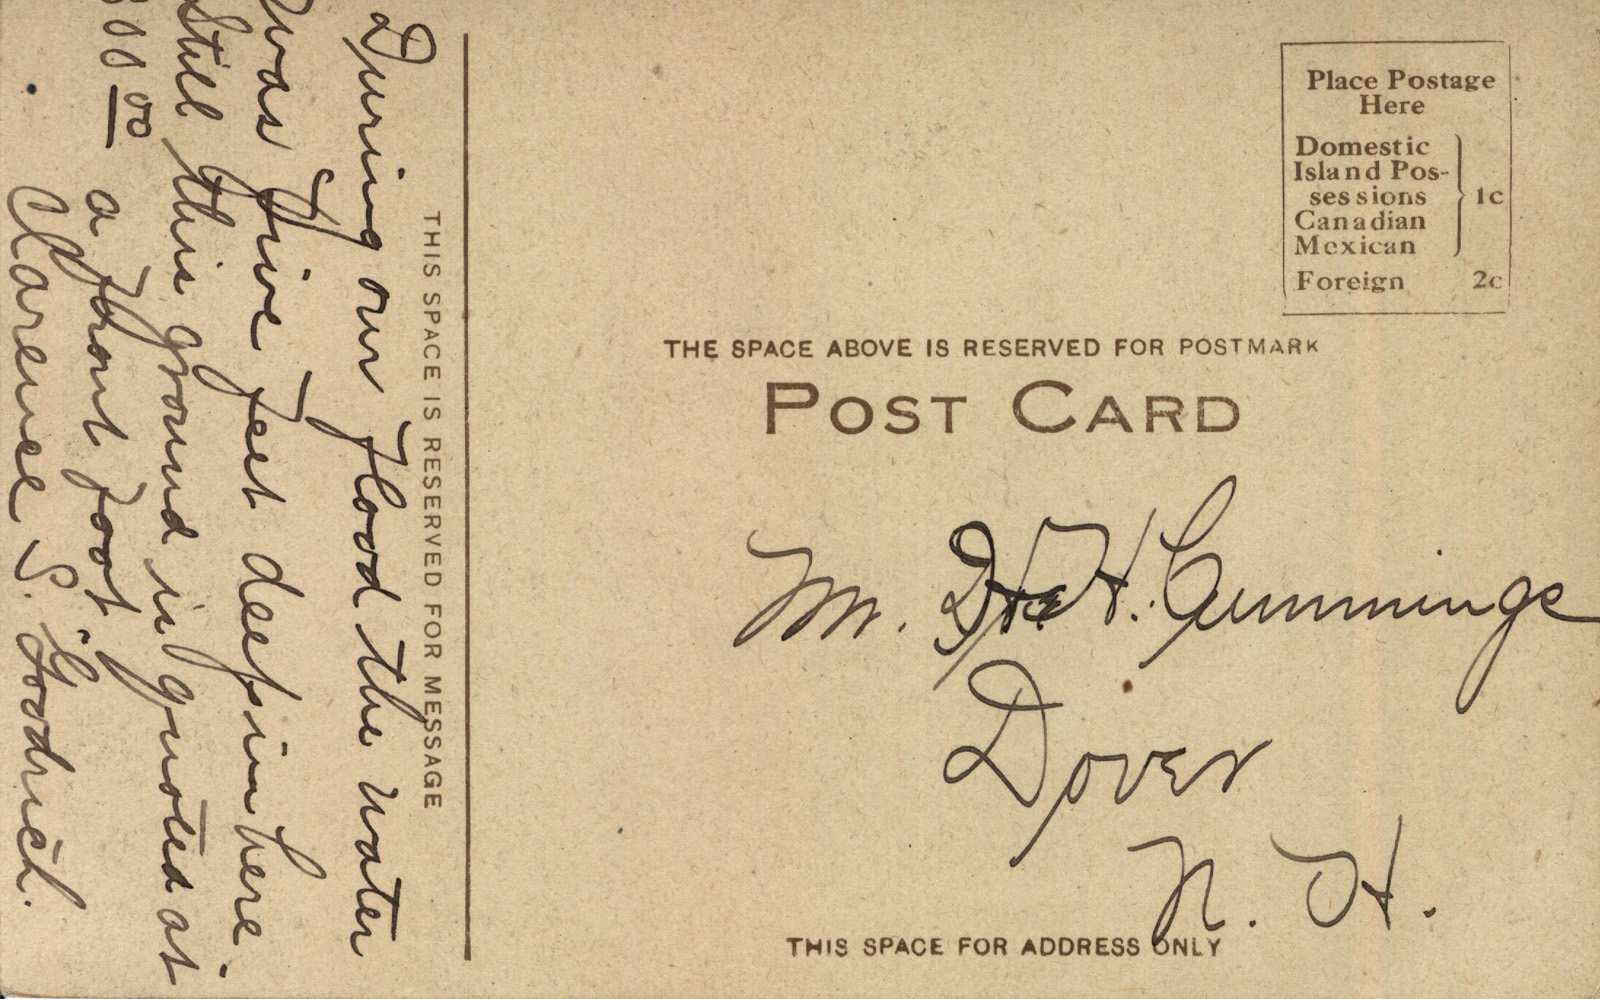 During our flood the water
was five feet deep in here.
Still this ground is quoted at
00 a front foot.
Clarence S. Goodrich.
THIS SPACE IS RESERVED FOR MESSAGE
Place Postage
Here
Domestic
Island Pos-
sessions
Canadian
Mexican
1c
Foreign 2c
THE SPACE ABOVE IS RESERVED FOR POSTMARK
POST CARD
Mr. H. Cummings
Dover
N. H.
THIS SPACE FOR ADDRESS ONLY